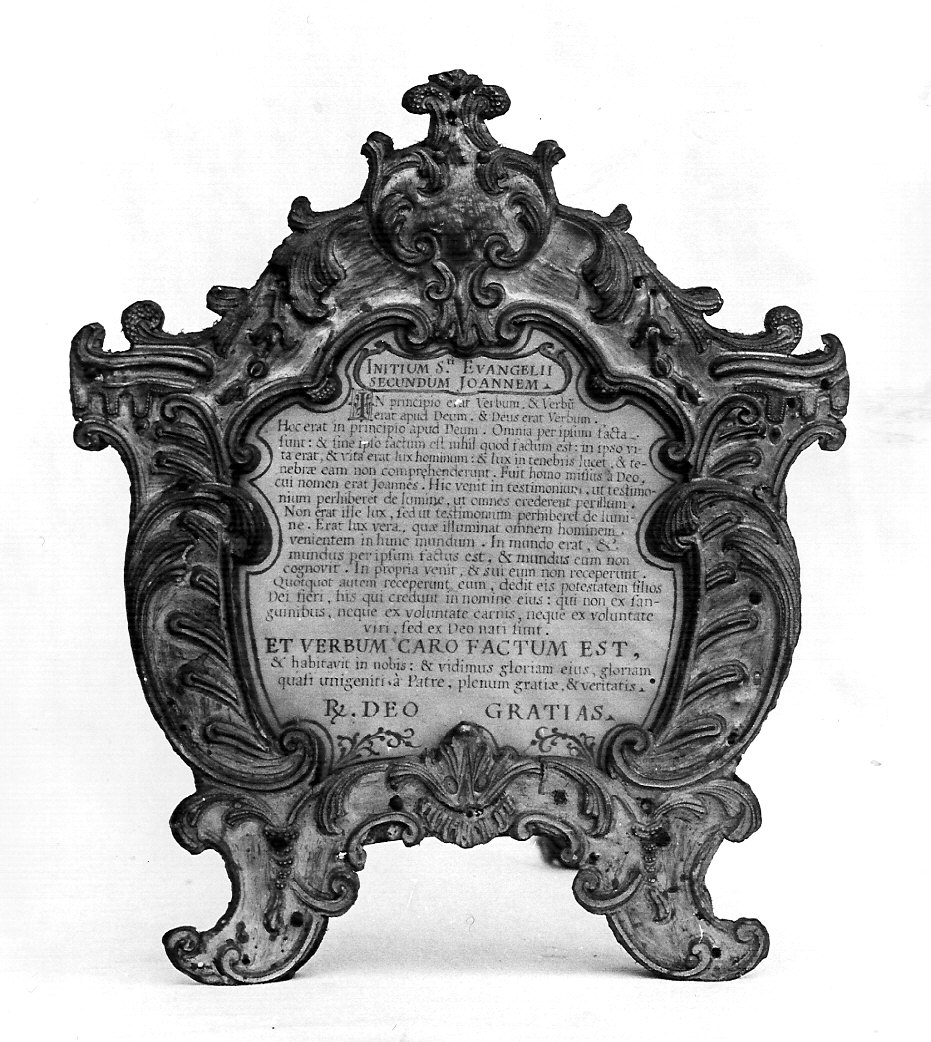 INITIUM S.ti EVANGELII
SECUNDUM JOANNEM.
IN principio erat Verbum, & Verbũ
erat apud Deum, & Deus erat Verbum.
Hoc erat in principio apud Deum. Omnia per ipsum facta
sunt: & sine ipso factum est nihil quod factum est: in ipso vi-
ta erat, & vita erat lux hominum: & lux in tenebris lucet, & te-
nebræ eam non comprehenderunt. Fuit homo missus à Deo,
cui nomen erat Joannes. Hic venit in testimonium, ut testimo-
nium perhiberet de lumine, ut omnes crederent per illum.
Non erat ille lux, sed ut testimonium perhiberet de lumi-
ne. Erat lux vera, quæ illuminat omnem hominem
venientem in hunc mundum. In mundo erat, &
mundus per ipsum factus est, & mundus eum non
cognovit. In propria venit, & sui eum non receperunt.
Quotquot autem receperunt eum, dedit eis potestatem filios
Dei fieri, his qui credunt in nomine eius: qui non ex san-
guinibus, neque ex voluntate carnis, neque ex voluntate
viri, sed ex Deo nati sunt.
ET VERBUM CARO FACTUM EST,
& habitavit in nobis: & vidimus gloriam eius, gloriam
quasi unigeniti à Patre, plenum gratiæ, & veritatis.
℟. DEO GRATIAS.